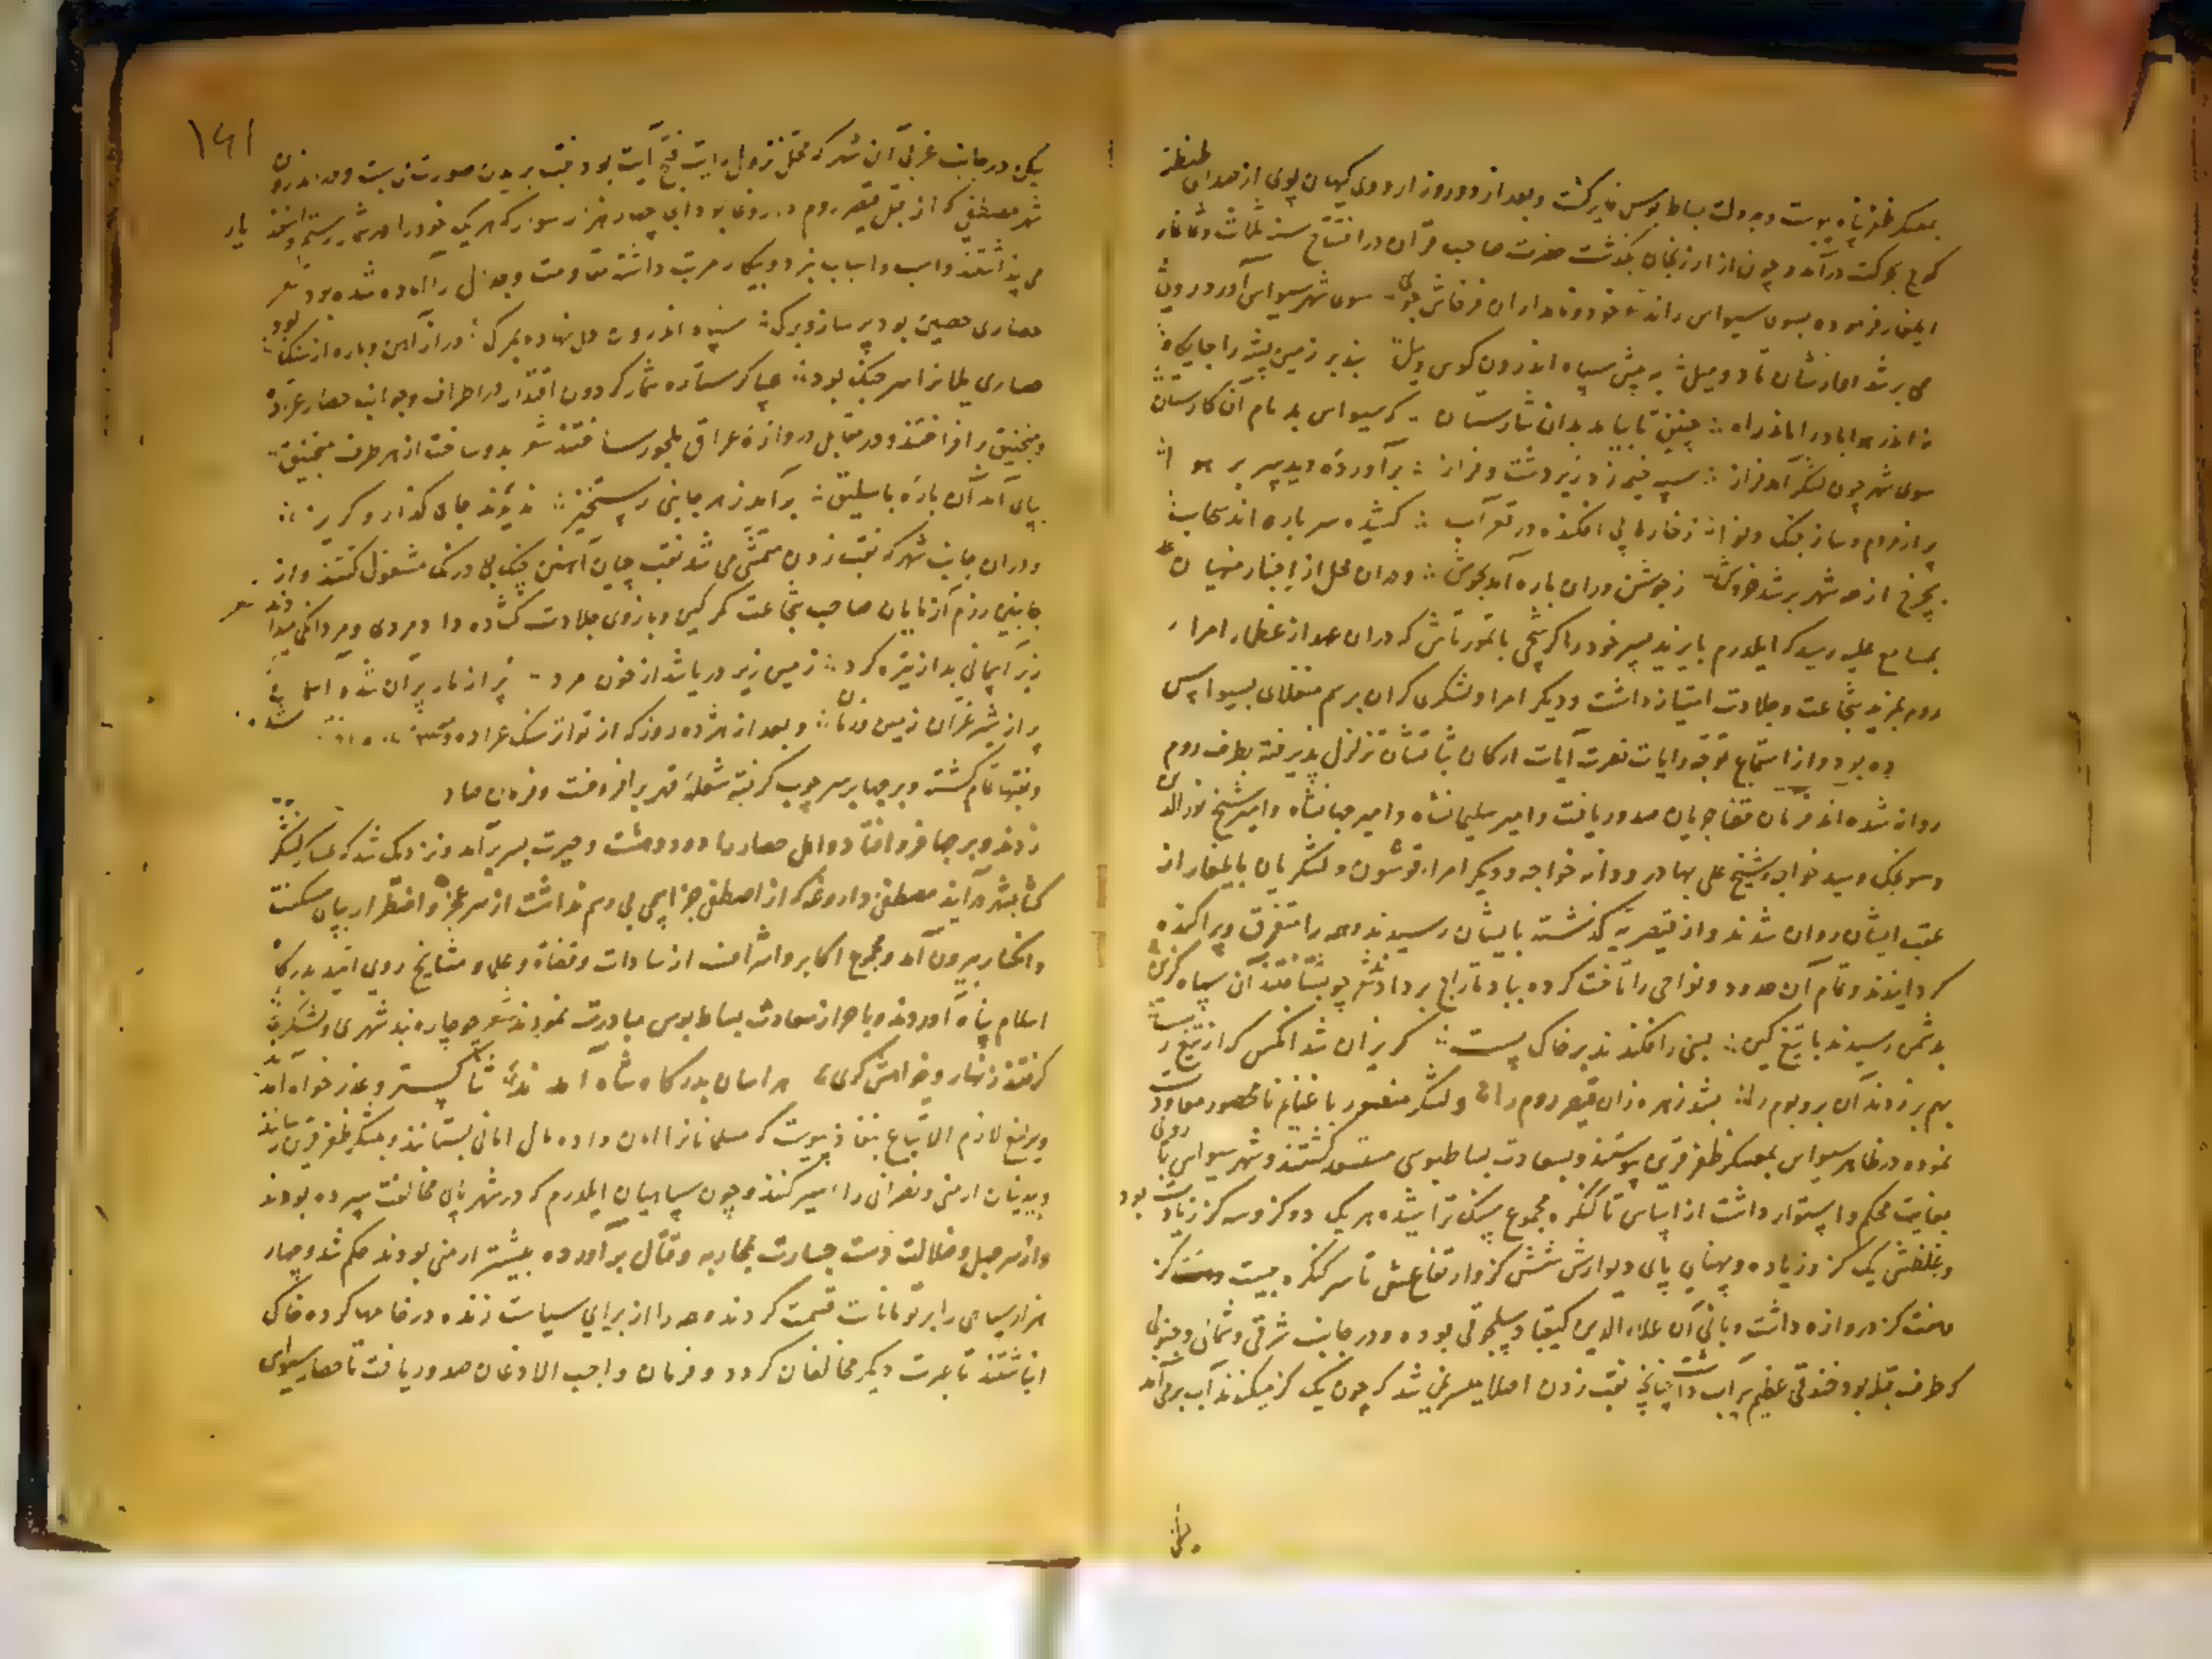 بمعسکر ظفر پناه پیوست و بدولت بساط بوس فایز گشت و بعد از دو روز اردوی کیهان پوی از صدای طنطنه
کوچ بحرکت درآمد و چون از ارزنجان بگذشت حضرت صاحب قران در افتتاح سنه ثلاث و ثمانمایه
ایلغار فرموده بسوی سیواس راند خود و نامداران پرخاش جوی سوی شهر سیواس آورد روی
می بر شد آوازشان تا دو میل به پیش سپاه اندرون کوس و پیل بند بر زمین پشه را جایگاه
نه اندر هوا باد را ماند راه چنین تا بیامد بدان شارستان که سیواس بد نام آن کارستان
سوی شهر چون لشکر آمد فراز سپه خیمه زد زیر دشت و فراز برآورده دید سر بر هوا
پر از مردم و ساز جنگ و نوا ز خارا پی افکنده در قعر آب کشیده سر باره اندر سحاب
بچرخ از همه شهر بر شد خروش ز جوشن وران باره آمد بجوش و در آن محل از اخبار منهیان
بمسامع علیه رسید که ایلدرم بایزید پسر خود را کرشجی با تمورتاش که در آن عهد از عظمای امراء
روم بمزید شجاعت و جلادت امتیاز داشت و دیگر امرا و لشکری گران برسم منقلای بسیواس
ده بود و از استماع توجه رایات نصرت آیات ارکان ثباتشان تزلزل پذیرفته بطرف روم
روانه شده اند فرمان قضا جریان صدور یافت و امیر سلیمانشاه و امیر جهانشاه و امیر شیخ نورالدین
و سونجک و سید خواجه شیخ علی بهادر و دانه خواجه و دیگر امراء قوشون و لشکریان بایلغار از
عقب ایشان روان شدند و از قیصریه گذشته بایشان رسیدند و همه را متفرق و پراکنده
گردانیدند و تمام آن حدود و نواحی را تاخت کرده بباد تاراج بردادند شعر چو بشتافتند آن سپاه گزین
بدشمن رسیدند با تیغ کین بسی را فکندند بر خاک پست گریزان شد آنکس که از تیغ رست
بهم برزدند آن بر و بوم را بشد زهره زان قیصر روم را و لشکر منصور با غنایم نامحصور معاودت
نموده در ظاهر سیواس بمعسکر ظفر قرین پیوستند و بسعادت بساط بوسی مستسعد گشتند و شهر سیواس باروئی
بغایت محکم و استوار داشت از اساس تا کنگره مجموع بسنگ تراشیده هر یک دو گز و سه گز زیادت بود
و بغلظتش یک گز و زیاده و پهنای پای دیوارش شش گز و ارتفاعش تا سر کنگره بیست گز
هفت گز دروازه داشت و بانی آن علاء الدین کیقباد سلجوقی بوده و در جانب شرقی و شمالی و جنوبی
که طرف قبله بود خندقی عظیم پر آب داشت چنانچه نقب زدن اصلا میسر نمی شد که چون یک گز میکندند آب برمی آمد
۱۶۱
لیکن در جانب غربی آن شهر که محل نزول رایت فتح آیت بود نقب بریدن صورت می بست و در اندرون
شهر مصطفی که از قبل قیصر روم داروغا بود با چهار هزار سوار که هر یک خود را هر شمار رستم و اسفندیار
می پنداشتند و اسب و اسباب نبرد و پیکار مرتب داشته مقاومت و جدال را آماده شده بود شعر
حصاری حصین بود پر ساز و برگ سپاه اندرون دل نهاده بمرگ در از آهن و باره از سنگ بود
حصاری یلان را سر جنگ بود عساکر ستاره شمار گردون اقتدار در اطراف و جوانب حصار عراده
و منجنیق برافراختند و در مقابل دروازه عراق ملجور ساختند شعر بدو ساخت از هر طرف منجنیق
بپای آمد آن باره باسلیق برآمد ز هر جانبی رستخیز ندیدند جای گذار و گریز
و در آن جانب شهر که نقب زدن متمشی می شد نقب چیان آهنین چنگ بی درنگ مشغول گشتند و از
جانبین رزم آزمایان صاحب شجاعت کمر کین و بازوی جلادت گشاده داد مردی و مردانگی میدادند شعر
زبر آسمانی بد از تیره گرد زمین زیر دریا شد از خون مرد پر از مار پران شد آسمان
پر از شیر غران زمین و زمان و بعد از هژده روز که از تواتر سنگ عراده
و نقبها تمام گشته و برجها بر سر چوب گرفته شعله قهر برافروخت و فرمان صادر
زدند و برجها فرو افتاد و اهل حصار را دود دهشت و حیرت بسر برآمد و نزدیک شد که عساکر لشکر
کشا بشهر درآیند مصطفی داروغه که از اصطفی جز اسمی بی رسم نداشت از سر عجز و اضطرار بپای مسکنت
و انکسار بیرون آمد و مجموع اکابر و اشراف از سادات و قضاة و علما و مشایخ روی امید بدرگاه
اسلام پناه آوردند و باحراز سعادت بساط بوس مبادرت نمودند شعر چو بیچاره شد شهری و لشکری
گرفتند زنهار و خواهش گری هراسان بدرگاه شاه آمدند ثنا گستر و عذر خواه آمدند
و یرلیغ لازم الاتباع بنفاذ پیوست که مسلمانانرا امان داده مال امانی بستانند و بمعسکر ظفر قرین رسانند
و بیدینان ارمنی و نصرانی را اسیر کنند و چون سپاهیان ایلدرم که در شهر پای مخالفت سپرده بودند
و از سر جهل و ضلالت دست جسارت بمحاربه و قتال برآورده بیشتر ارمنی بودند حکم شد و چهار
هزار سپاهی را بر تومانات قسمت کردند و همه را از برای سیاست زنده در چاهها کرده خاک
انباشتند تا عبرت دیگر مخالفان گردد و فرمان واجب الاذعان صدور یافت تا حصار سیواس